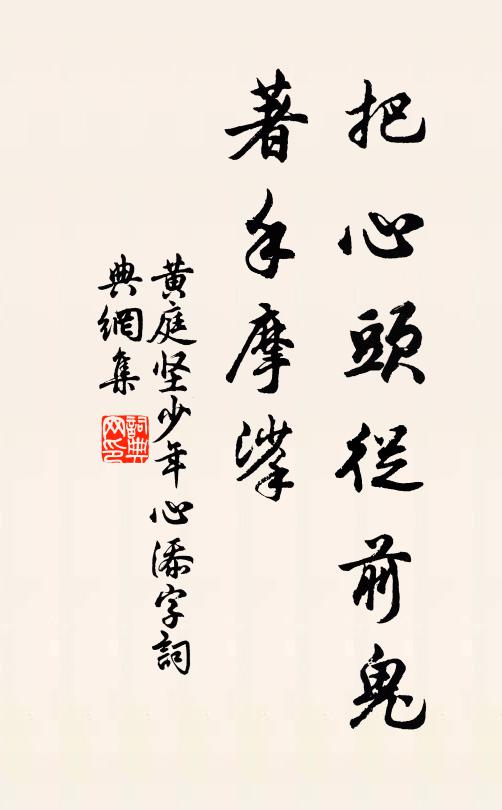 把心頭從前鬼
著手摩挲
黃庭坚少年心添字詞
典網集
詞典
网印